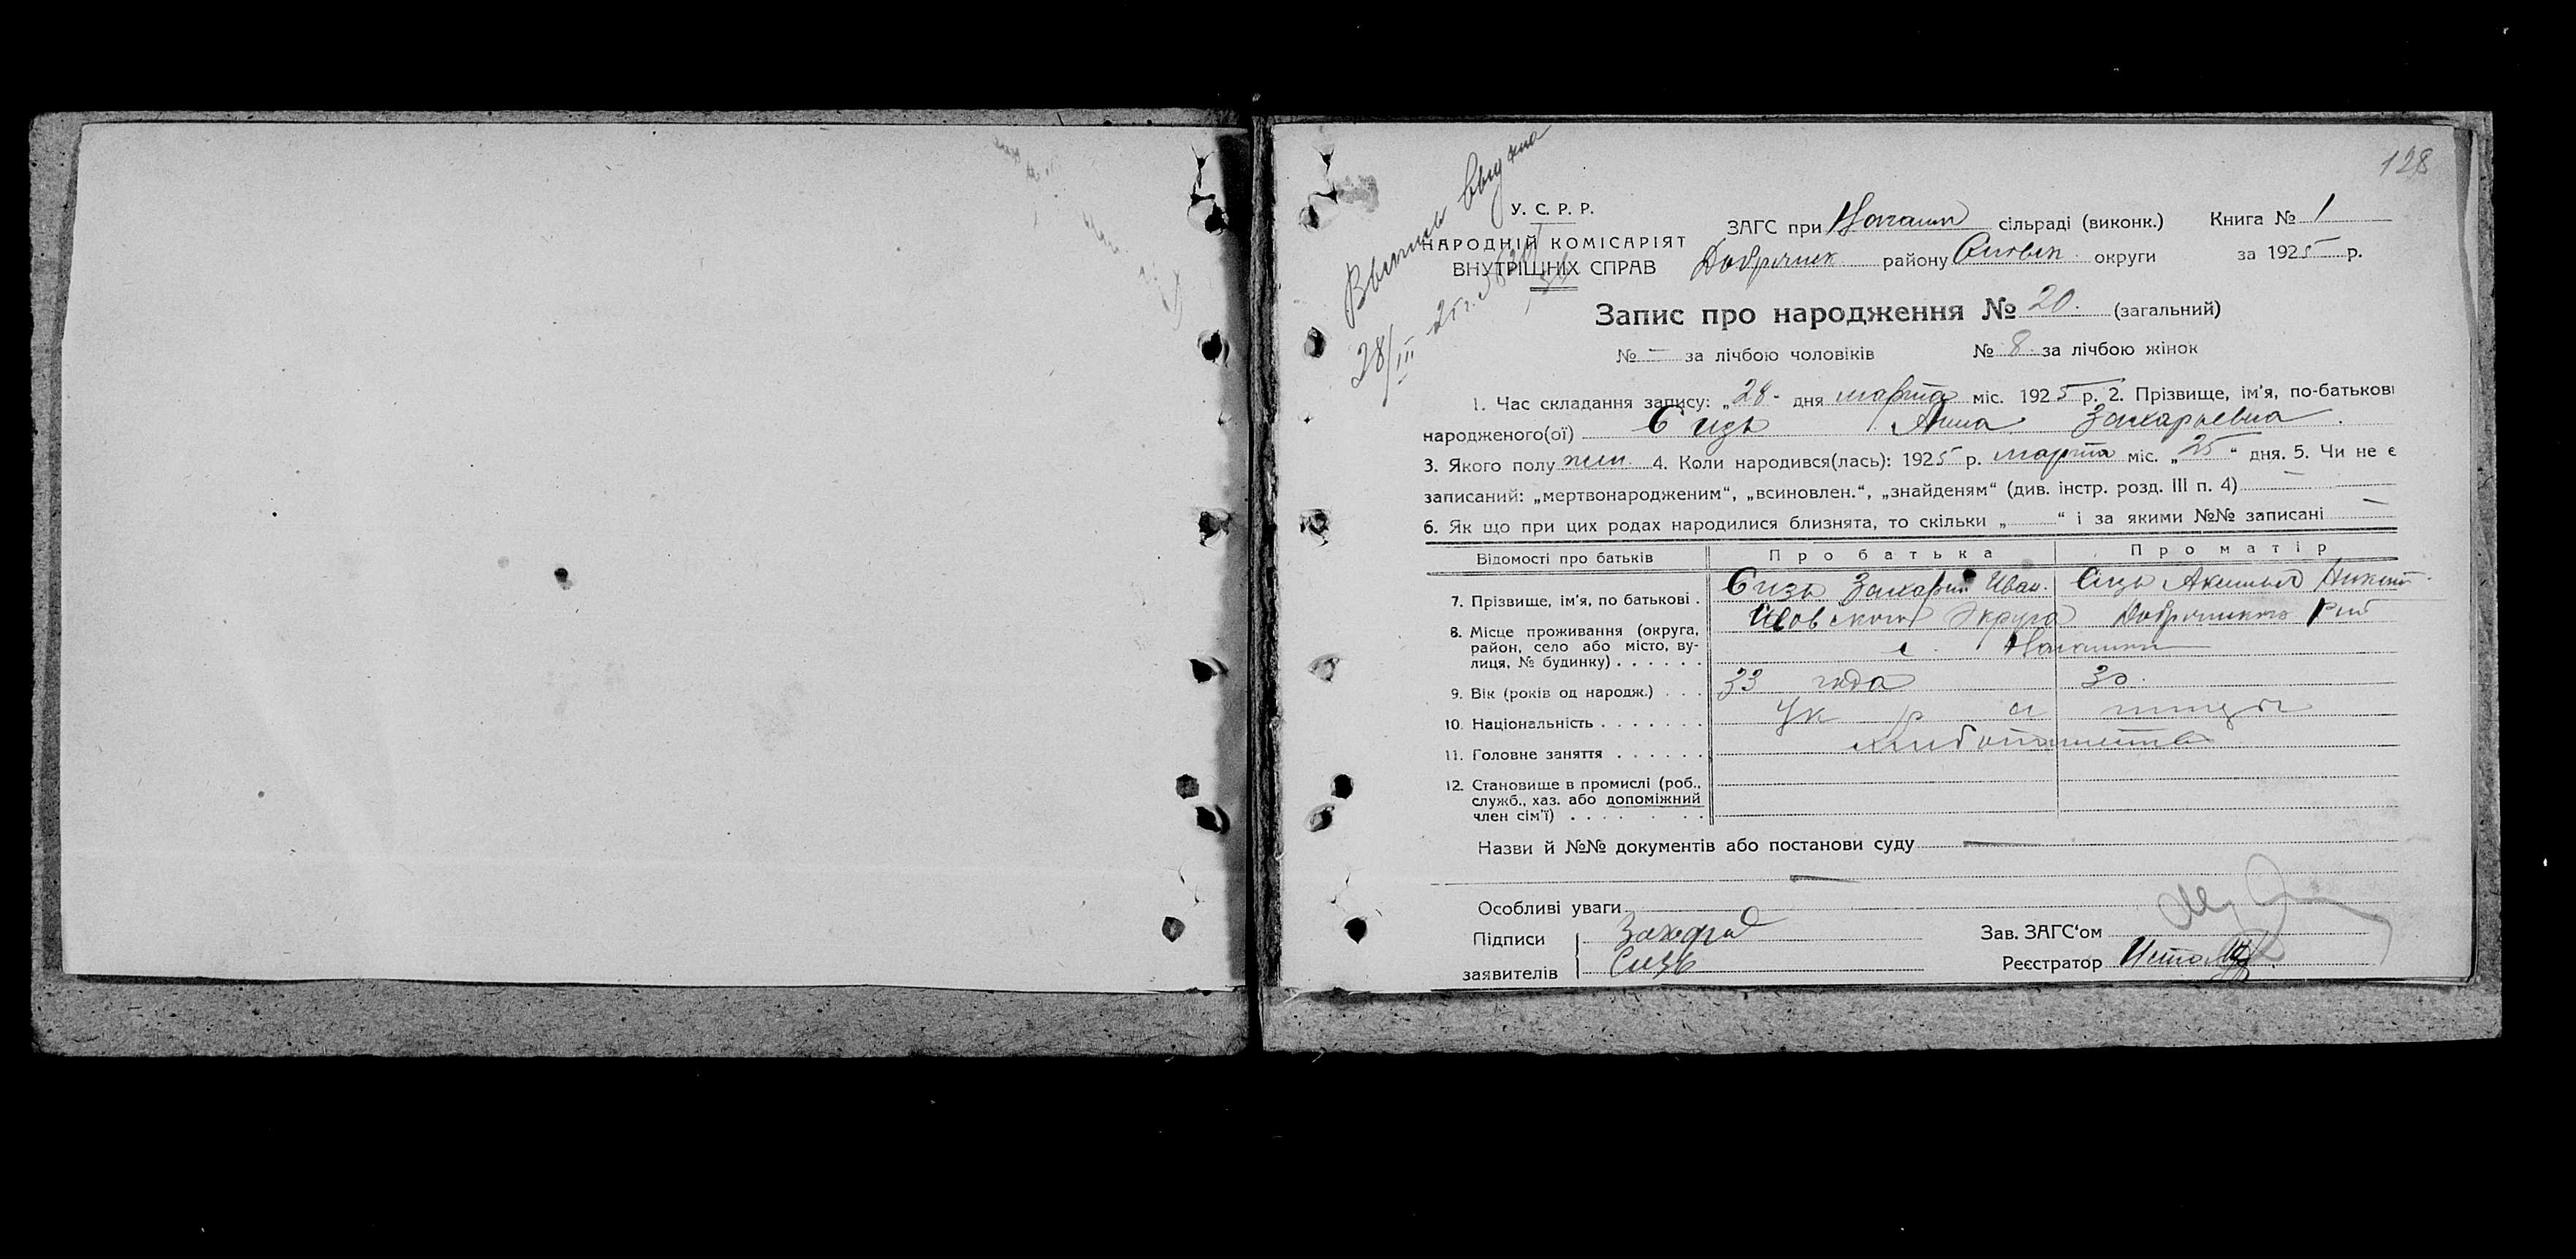 128
Выпись выдана
28/III 25 г. №
У. С. Р. Р.
НАРОДНІЙ КОМІСАРІЯТ
ВНУТРІШНІХ СПРАВ
ЗАГС при сільраді (виконк.) Книга № 1
району округи за 1925 р.
Запис про народження № 20. (загальний)
№ — за лічбою чоловіків № 8. за лічбою жінок
1. Час складання запису: „28" дня марта міс. 1925 р. 2. Прізвище, ім'я, по-батькові
народженого(ої) Сизь Анна Захарьевна.
3. Якого полу жен. 4. Коли народився(лась): 1925 р. марта міс. „25" дня. 5. Чи не є
записаний: „мертвонародженим", „всиновлен.", „знайденям" (див. інстр. розд. III п. 4) —
6. Як що при цих родах народилися близнята, то скільки „ " і за якими №№ записані —
Відомості про батьків Про батька Про матір
7. Прізвище, ім'я, по батькові . Сизь Захарий Иван. Сизь Акилина Никит.
8. Місце проживання (округа,
район, село або місто, ву-
лиця, № будинку) . . . . . . округа с.
9. Вік (років од народж.) . . . 33 года 30.
10. Національність . . . . . . . украинцы
11. Головне заняття . . . . . . хлебопашество
12. Становище в промислі (роб.,
служб., хаз. або допоміжний
член сім'ї) . . . . . . .
Назви й №№ документів або постанови суду —
—
Особливі уваги
Підписи Захарий Зав. ЗАГС'ом
заявителів Сизь Реєстратор